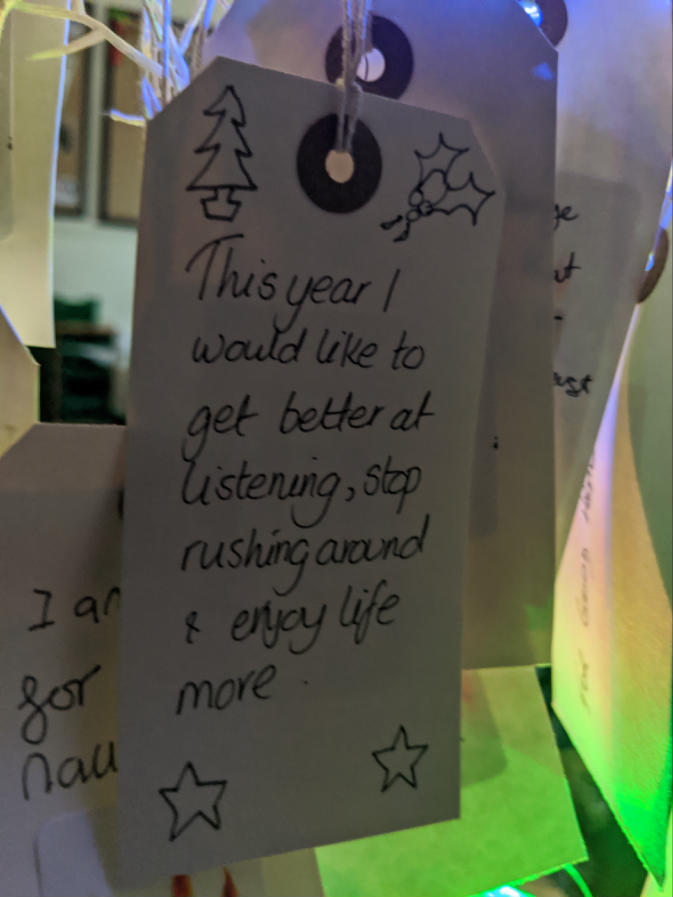 This year I
would like to
get better at
listening, stop
rushing around
& enjoy life
more.
I
for